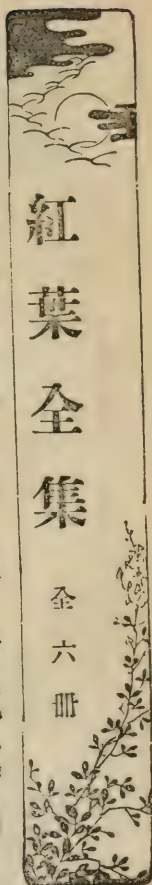 紅葉全集
全六冊